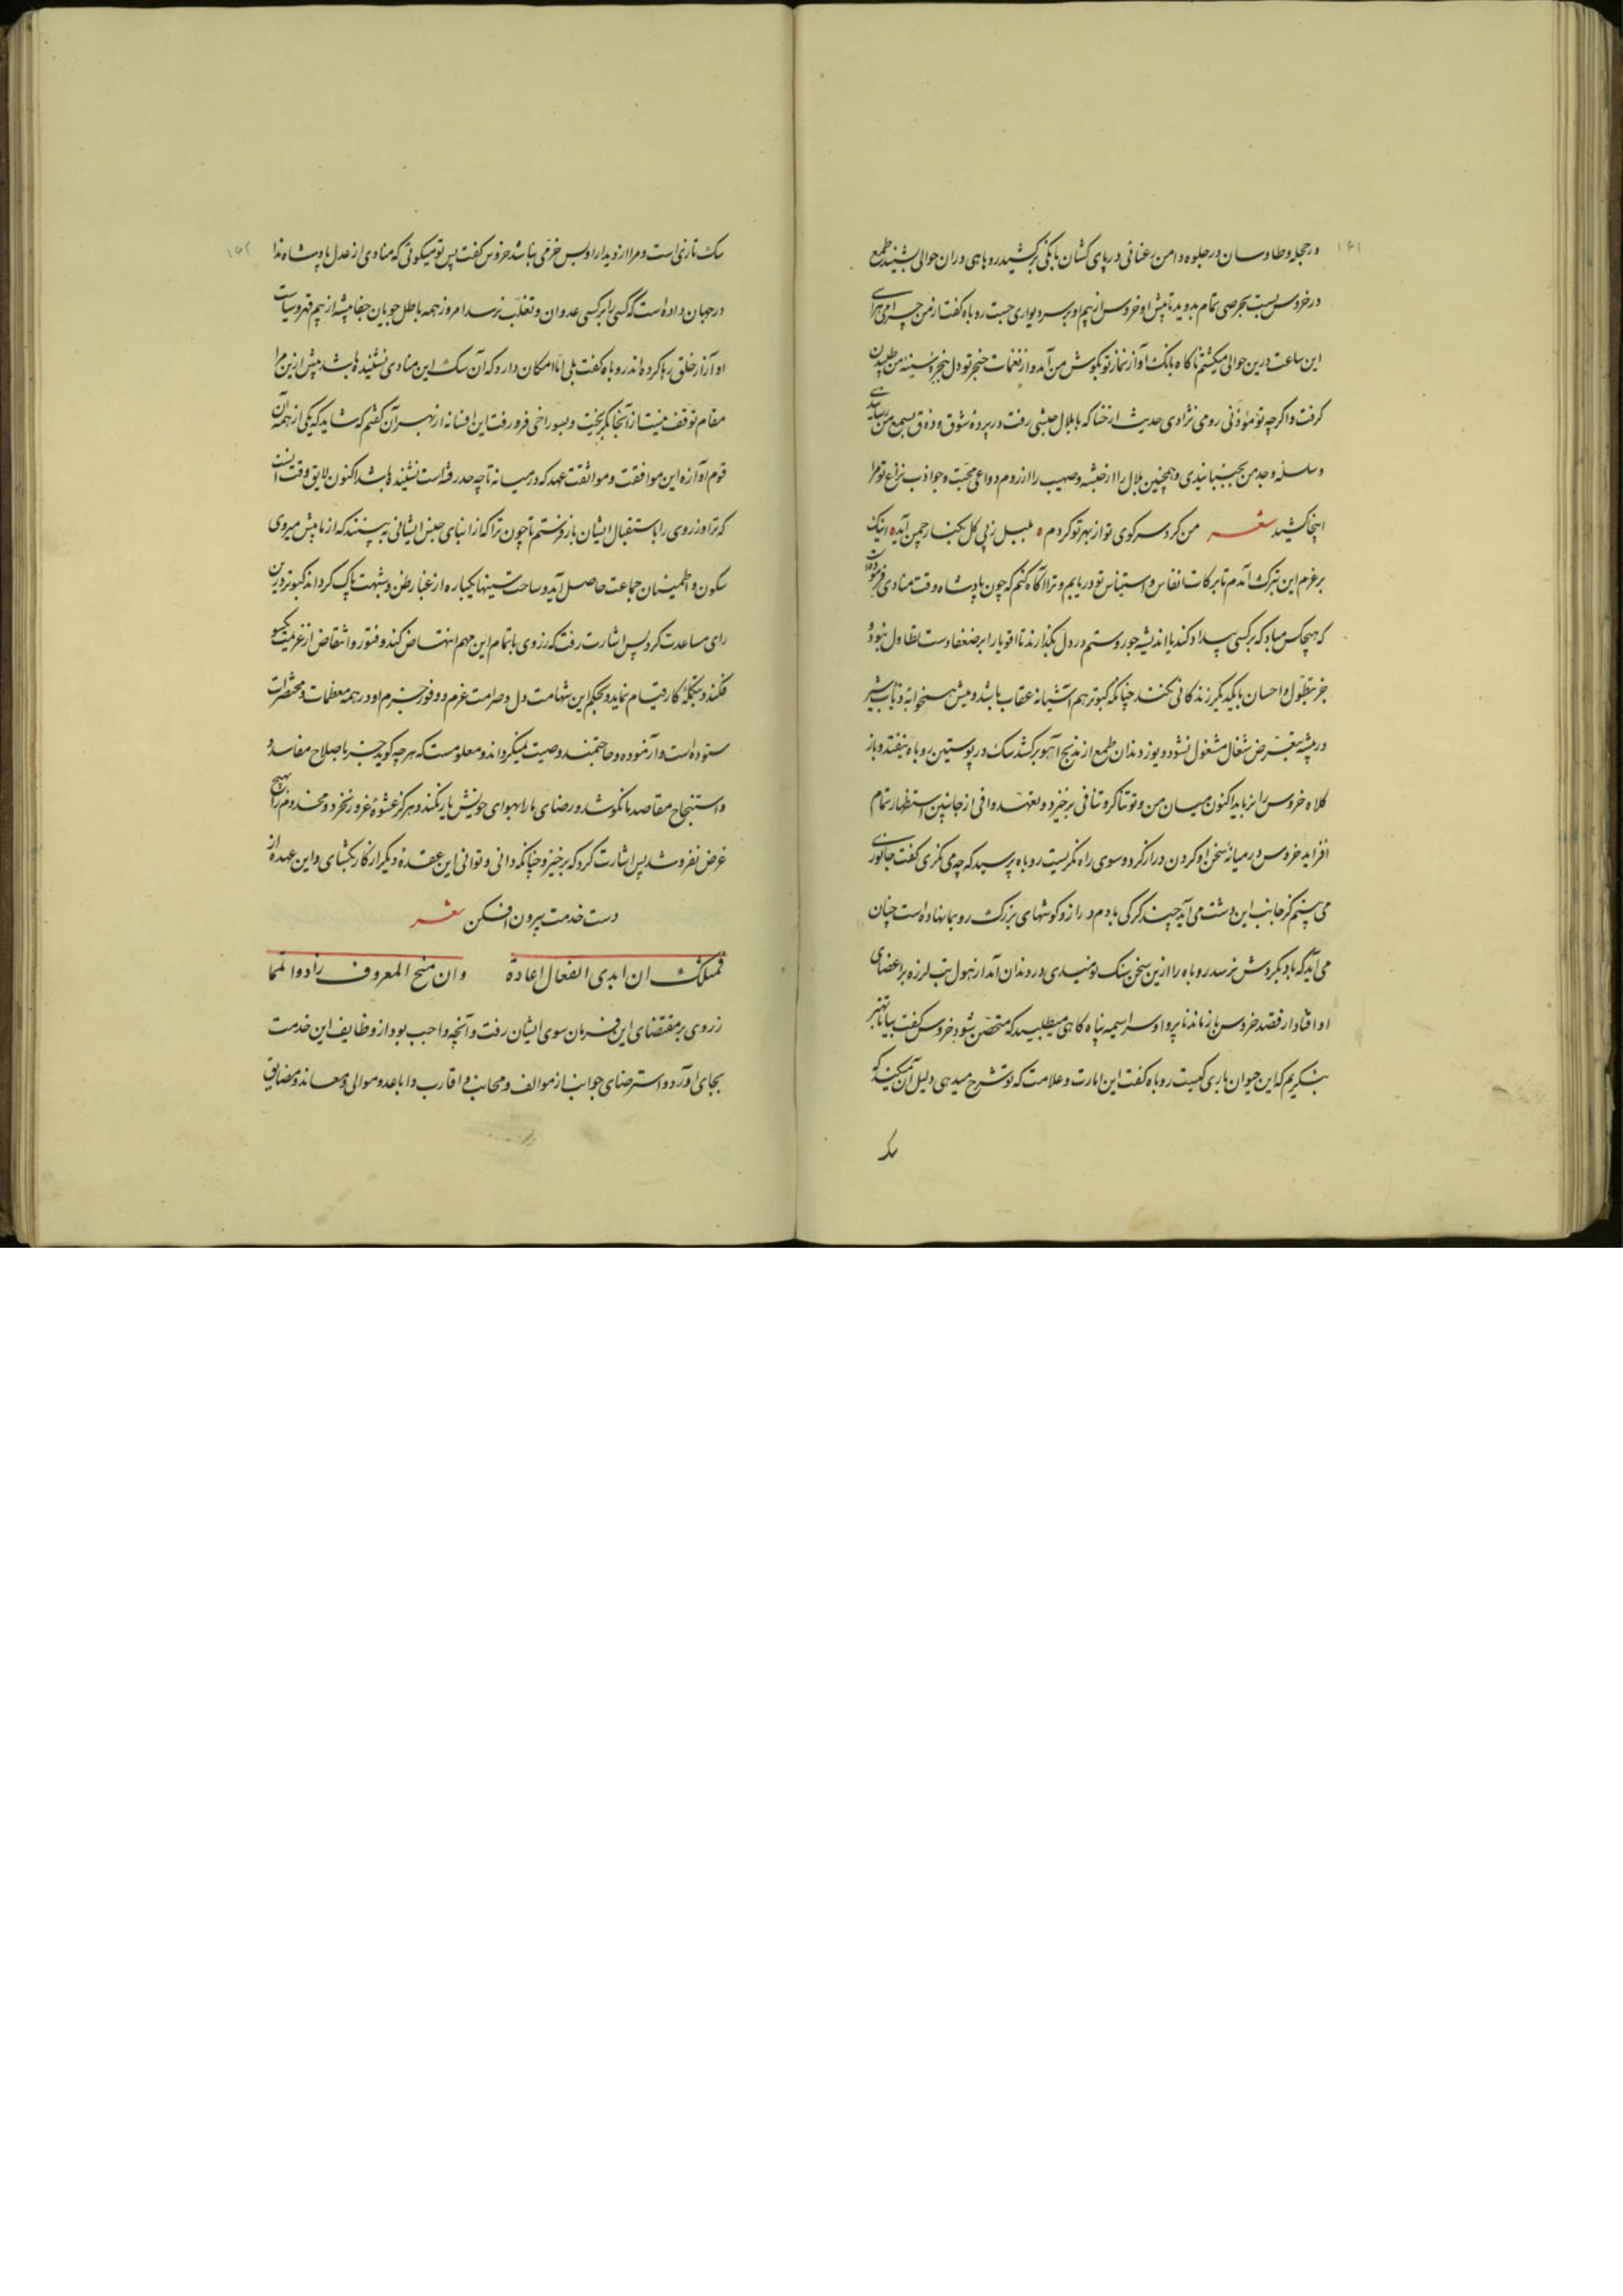 ۱۶۱
در حجله و طاوسان در جلوه دامن رعنائی در پای کشان بانکی برکشید روباهی در ان حوالی بشنید طمع
در خروس بست بحرصی تمام بدوید تا پیش او خروس از بیم او بر سر دیواری جست روباه کفت از من چرا می هراسی
این ساعت درین حوالی میکشتم ناکاه بانک اواز نماز تو بکوش من آمد و از نغمات حنجر تو دل در پنجره سینه من طپیدن
کرفت و اکرچه تو موذنی رومی نژادی حدیث ارحنا که با بلال حبشی رفت در پرده شوق و ذوق بسمع من رسانیدی
و سلسلۀ وجد من بجنبانیدی و همچنین بلال را از حبشه و صهیب را از روم دواعی محبت و جواذب نزاع تو مرا
اینجا کشید شعـر من کرد سر کوی تو از بهر تو کردم ه بلبل ز پی کل بکنار چمن آید ه اینک
بر عزم این تبرک آمدم تا برکات انفاس و استیناس تو دریابم و ترا آکاه کنم که چون پادشاه وقت منادی فرمودست
که هیچکس مباد که بر کسی بیداد کند یا اندیشه جور و ستم در دل بکذارند تا اقویا را بر ضعفا دست تطاول نبود و
جز بتطول و احسان با یکدیکر زندکانی نکنند چنانکه کبوتر هم آشیانه عقاب باشد و میش همخوابه ذئاب شیر
در بیشه بتعرض شغال مشغول نشود و یوز دندان طمع از مذبح آهو برکشد سک در پوستین روباه نیفتد و باز
کلاه خروس را نرباید اکنون میان من و تو تناکر و تنافی برخیزد و بعهد وافی از جانبین استظهار تمام
افزاید خروس در میانۀ سخن او کردن دراز کرد و سوی راه نکریست روباه پرسید که چه می نکری کفت جانوری
می بینم کز جانب این دشت می آید چند کرکی با دم دراز و کوشهای بزرک رو بما نهاده است چنان
می آید که باد بکردش نرسد روباه را ازین سخن سنک نومیدی در دندان آمد از هول تب لرزه بر اعضای
او افتاد از قصد خروس باز ماند ناپروا و سراسیمه پناه کاهی میطلبید که متحصن شود خروس کفت بیا تا بهتر
بنکریم که این حیوان باری کیست روباه کفت این امارت و علامت که تو شرح میدهی دلیل آن میکند که
سک
۱۶۲
سک تازی است و مرا از دیدار او بس خرمی نباشد خروس کفت پس تو میکوئی که منادی از عدل پادشاه ندا
در جهان داده است که کسی را بر کسی عدوان و تغلب نرسد امروز همه باطل جویان جفا پیشه از بیم قهر و سیاست
او آزار خلق رها کرده اند روباه کفت بلی اما امکان دارد که آن سک این منادی نشنیده باشد بیش ازین مرا
مقام توقف نیست از آنجا بکریخت و بسوراخی فرو رفت این افسانه از بهر آن کفتم که شاید که یکی از همه آن
قوم آوازه این موافقت و مواثقت عهد که در میانه تا چه حد رفته است نشنیده باشد اکنون لایق وقت آنست
که ترا و زروی را باستقبال ایشان باز فرستم تا چون ترا که از ابنای جنس ایشانی به بینند که از ما پیش میروی
سکون و اطمینان جماعت حاصل آید و ساحت سینها یکباره از غبار ظن و شبهت پاک کردانند کبوتر درین
رای مساعدت کرد پس اشارت رفت که زروی باتمام این مهم انتهاض کند و فتور و انتقاض از عزیمت یکسو
فکند و بتکلۀ کار قیام نماید و بحکم این شهامت دل و صرامت عزم و وفور حزم او در همه معظمات و محقرات
ستوده است و آزموده و حاجتمند وصیت نمیکرداند و معلومست که هرچه کوید جز باصلاح مفاسد و
و استنجاح مقاصد ما نکوشد و رضای ما را بهوای خویش باز نکند و هرکز عشوۀ غرور نخرد و مخدوم را بهیچ
غرض نفروشد پس اشارت کرد که برخیز و چنانکه دانی و توانی این عقدۀ دیکر از کار بکشای و این عهده از
دست خدمت بیرون افکن شعـر
فمثلک ان ابدی الفعال اعادة وان منح المعروف زاد و اتمما
زروی بر مقتضای این فرمان سوی ایشان رفت و آنچه واجب بود از وظایف این خدمت
بجای آورد و استرضای جوانب از موالف و مجانب و اقارب و اباعد و موالی و معاند و مضایق